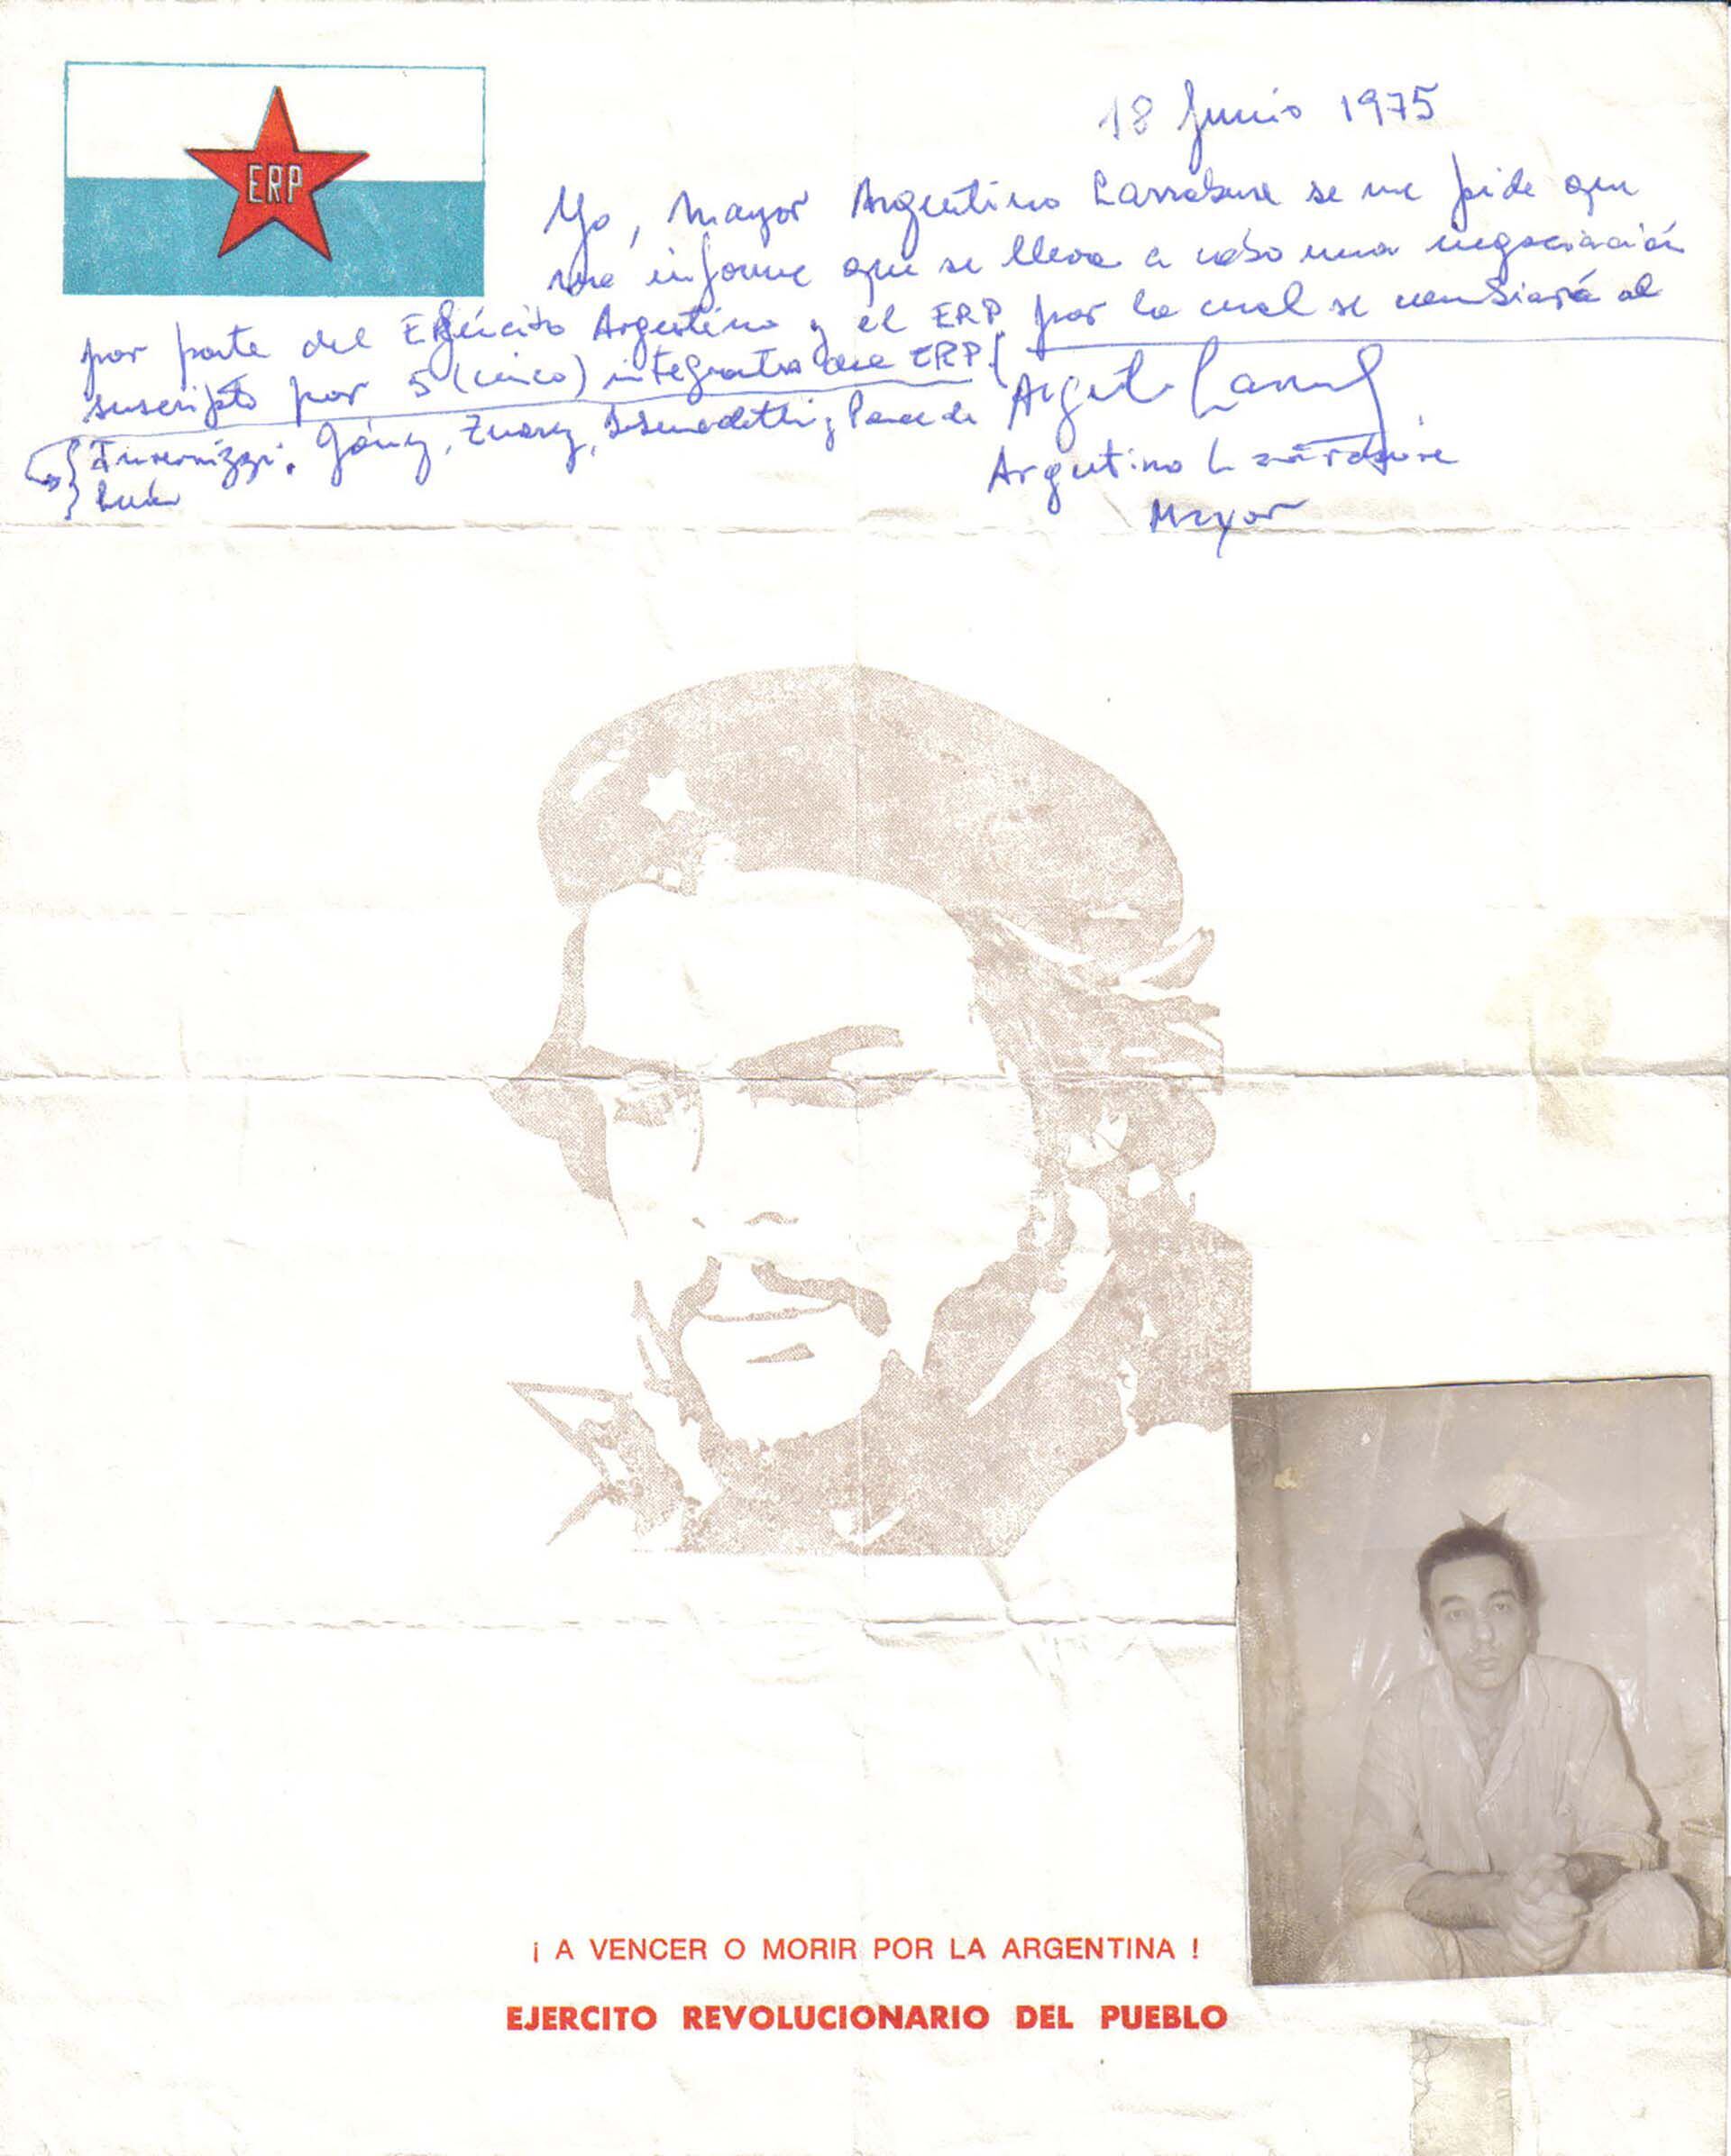 ERP
18 Junio 1975
Yo, Mayor Argentino Larrabure se me pide que
me informe que se lleva a cabo una negociación
por parte del Ejército Argentino y el ERP por la cual se cambiará al
suscripto por 5 (cinco) integrantes del ERP
Invernizzi, Gómez, Zuarez, Debenedetti y Ponce de
León
Argentino Larrabure
Mayor
¡ A VENCER O MORIR POR LA ARGENTINA !
EJERCITO REVOLUCIONARIO DEL PUEBLO